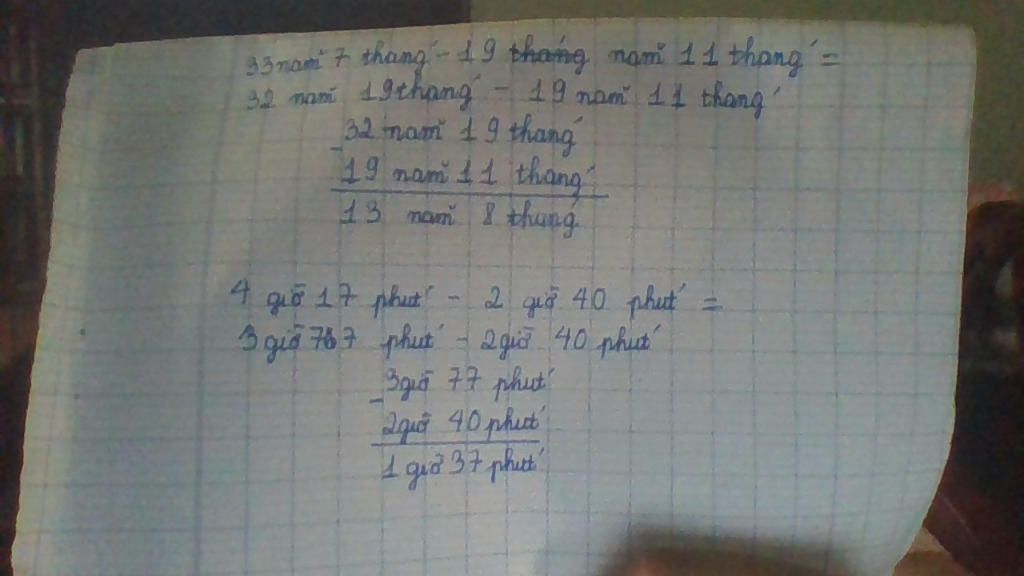 33 năm 7 tháng - 19 tháng năm 11 tháng =
32 năm 19 tháng - 19 năm 11 tháng
- 32 năm 19 tháng
19 năm 11 tháng
13 năm 8 tháng
4 giờ 17 phút - 2 giờ 40 phút =
3 giờ 77 phút - 2 giờ 40 phút
- 3 giờ 77 phút
2 giờ 40 phút
1 giờ 37 phút